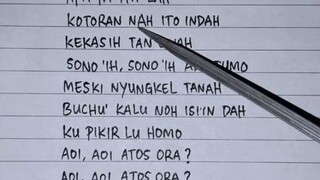 KOTORAN NAH ITO INDAH
KEKASIH TAN
SONO 'IH, SONO 'IH
MESKI NYUNGKEL TANAH
BUCHU' KALU NOH ISI'IN DAH
KU PIKIR LU HOMO
AOI, AOI ATOS ORA?
AOI, AOI ATOS ORA?